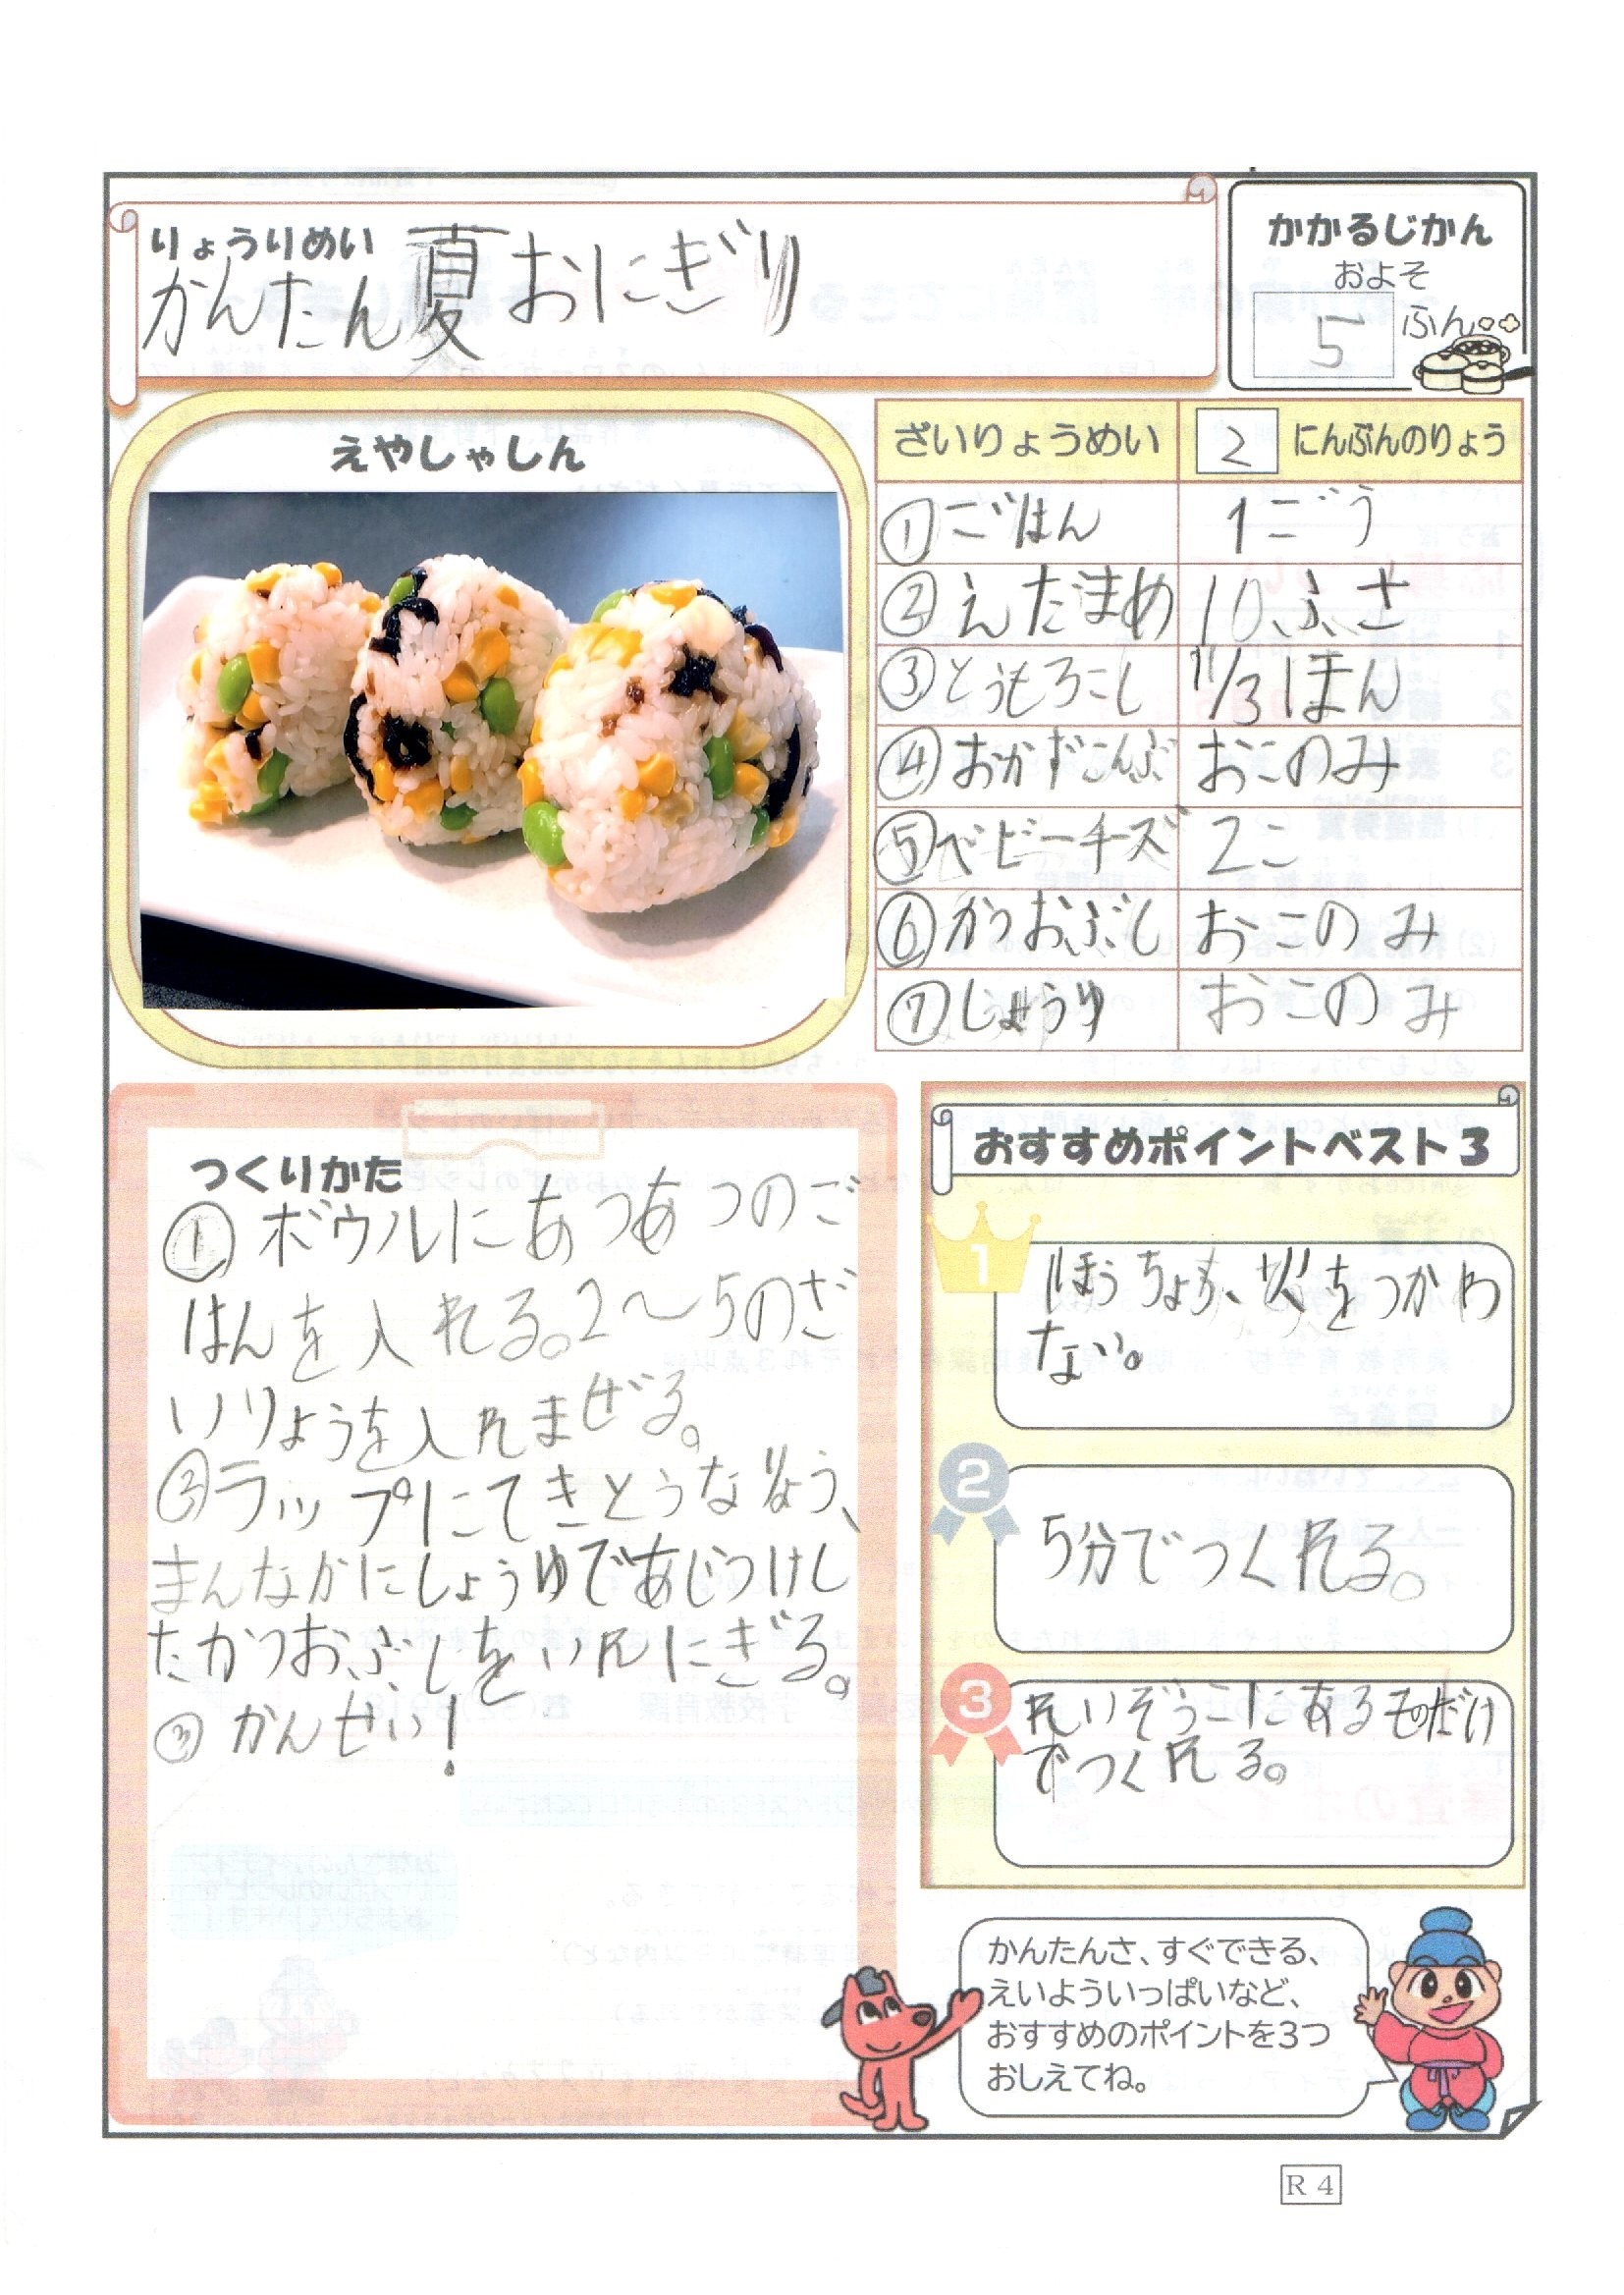 りょうりめい
かんたん夏おにぎり
かかるじかん
およそ
5 ふん
えやしゃしん
ざいりょうめい 2 にんぶんのりょう
①ごはん 1ごう
②えだまめ 10ふさ
③とうもろこし 1/3ほん
④おかずこんぶ おこのみ
⑤ベビーチーズ 2こ
⑥かつおぶし おこのみ
⑦しょうゆ おこのみ
つくりかた
①ボウルにあつあつのご
はんを入れる。2～5のざ
いりょうを入れまぜる。
②ラップにてきとうなりょう、
まんなかにしょうゆであじつけし
たかつおぶしをいれにぎる。
③かんせい!
おすすめポイントベスト3
1
ほうちょう、火をつかわ
ない。
2
5分でつくれる。
3
れいぞうこにあるものだけ
でつくれる。
かんたんさ、すぐできる、
えいよういっぱいなど、
おすすめのポイントを3つ
おしえてね。
R 4